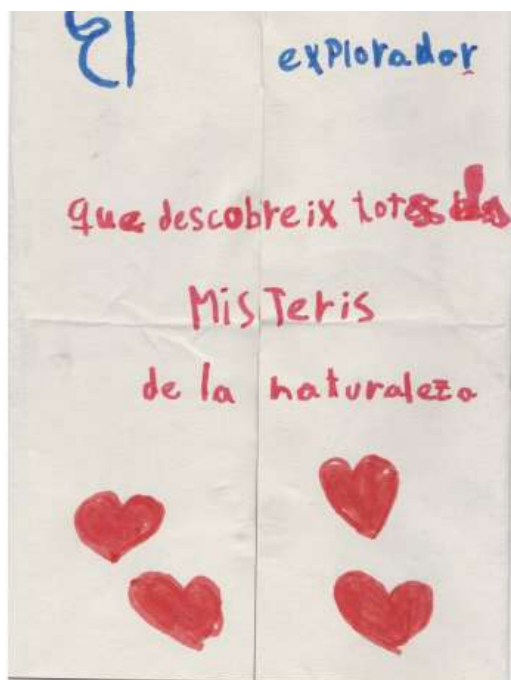 El explorador
que descobreix tots els
MisTeris
de la naturaleza